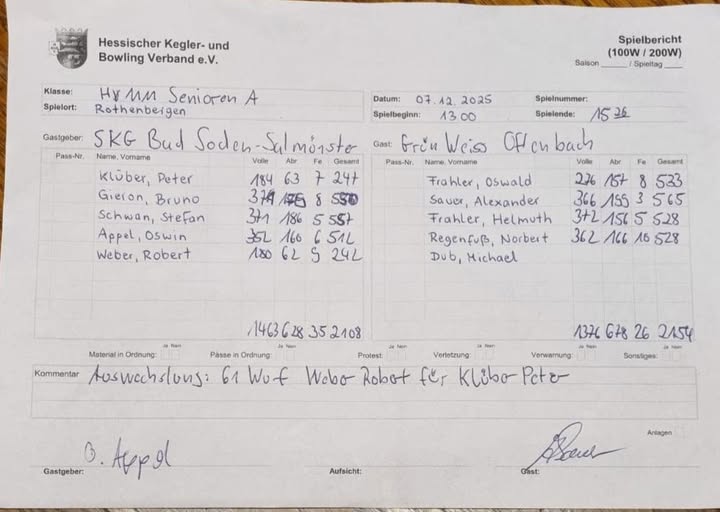 Hessischer Kegler- und
Bowling Verband e.V.
Spielbericht
(100W / 200W)
Saison ______ / Spieltag ____
Klasse: HVMM Senioren A
Datum: 07.12.2025 Spielnummer:
Spielort: Rothenbergen
Spielbeginn: 13.00 Spielende: 15 36
Gastgeber: SKG Bad Soden-Salmünster Gast: Grün Weiss Offenbach
Pass-Nr. Name, Vorname Volle Abr Fe Gesamt Pass-Nr. Name, Vorname Volle Abr Fe Gesamt
Klüber, Peter 184 63 7 247 Frahler, Oswald 276 157 8 533
Gieron, Bruno 8 Sauer, Alexander 366 199 3 565
Schwan, Stefan 371 186 5 557 Frahler, Helmuth 372 156 5 528
Appel, Oswin 352 160 6 512 Regenfuß, Norbert 362 166 10 528
Weber, Robert 180 62 9 242 Dub, Michael
1463 628 35 2108 1376 678 26 2154
Ja Nein Ja Nein Ja Nein Ja Nein Ja Nein
Material in Ordnung: Pässe in Ordnung: Protest: Verletzung: Verwarnung: Sonstiges:
Kommentar Auswechslung: 61 Wurf Weber Robert für Klüber Peter
Anlagen
O. Appel
Gastgeber: Aufsicht: Gast: